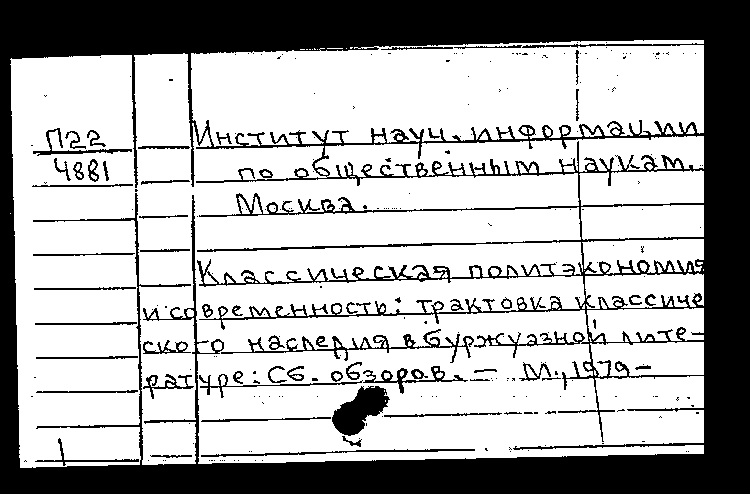 П22
4881
Институт науч. информации
по общественным наукам.
Москва.
Классическая политэкономия
и современность: трактовка классиче
ского наследия в буржуазной лите–
ратуре: Сб. обзоров. – М., 1979–